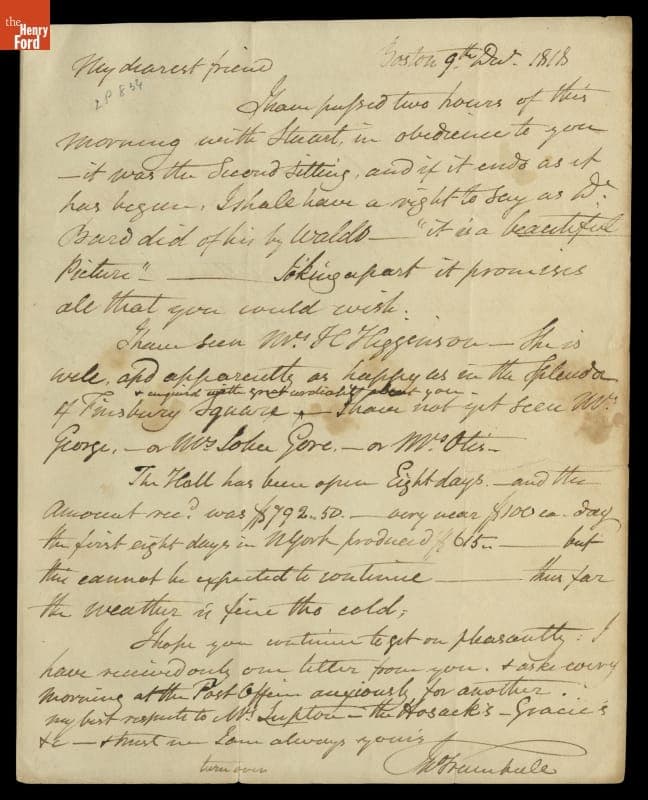 the
Henry
Ford
Boston 9th Decr. 1818
My dearest friend
2P834
I have passed two hours of this
morning with Stuart, in obedience to you
— it was the Second sitting, and if it ends as it
has begun, I shall have a right to say as Dr.
Bard did of his by Waldo — "it is a beautiful
Picture" — Joking apart it promises
all that you could wish.
I have seen Mrs. H Higginson — She is
well, and apparently as happy as in the Splendor
& inquired with great cordiality about you —
of Finsbury Square — I have not yet seen Mrs.
George, — or Mrs John Gore, — or Mrs Otis —
The Hall has been open Eight days. — and the
Amount recd. was $792..50. — very near $100 ea. day
the first eight days in NYork produced $615 — but
this cannot be expected to continue — thus far
the weather is fine tho cold;
I hope you continue to get on pleasantly: I
have received only one letter from you. & aske every
morning at the Post Office anxiously for another.
my best respects to Mrs Lupton — the Hosack's — Gracie's
&c — & trust me I am always yours
Jno Trumbull
turn over